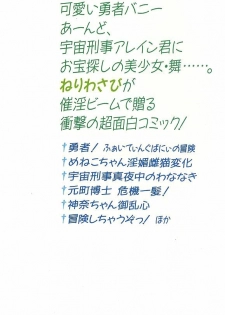 可愛い勇者バニー
あーんど、
宇宙刑事アレイン君に
お宝探しの美少女・舞……。
ねりわさびが
催淫ビームで贈る
衝撃の超面白コミック!
†勇者! ふぁいてぃんぐばにぃの冒険
†めねこちゃん淫媚雌猫変化
†宇宙刑事真夜中のわななき
†元町博士 危機一髪!
†神奈ちゃん御乱心
†冒険しちゃうぞっ! ほか